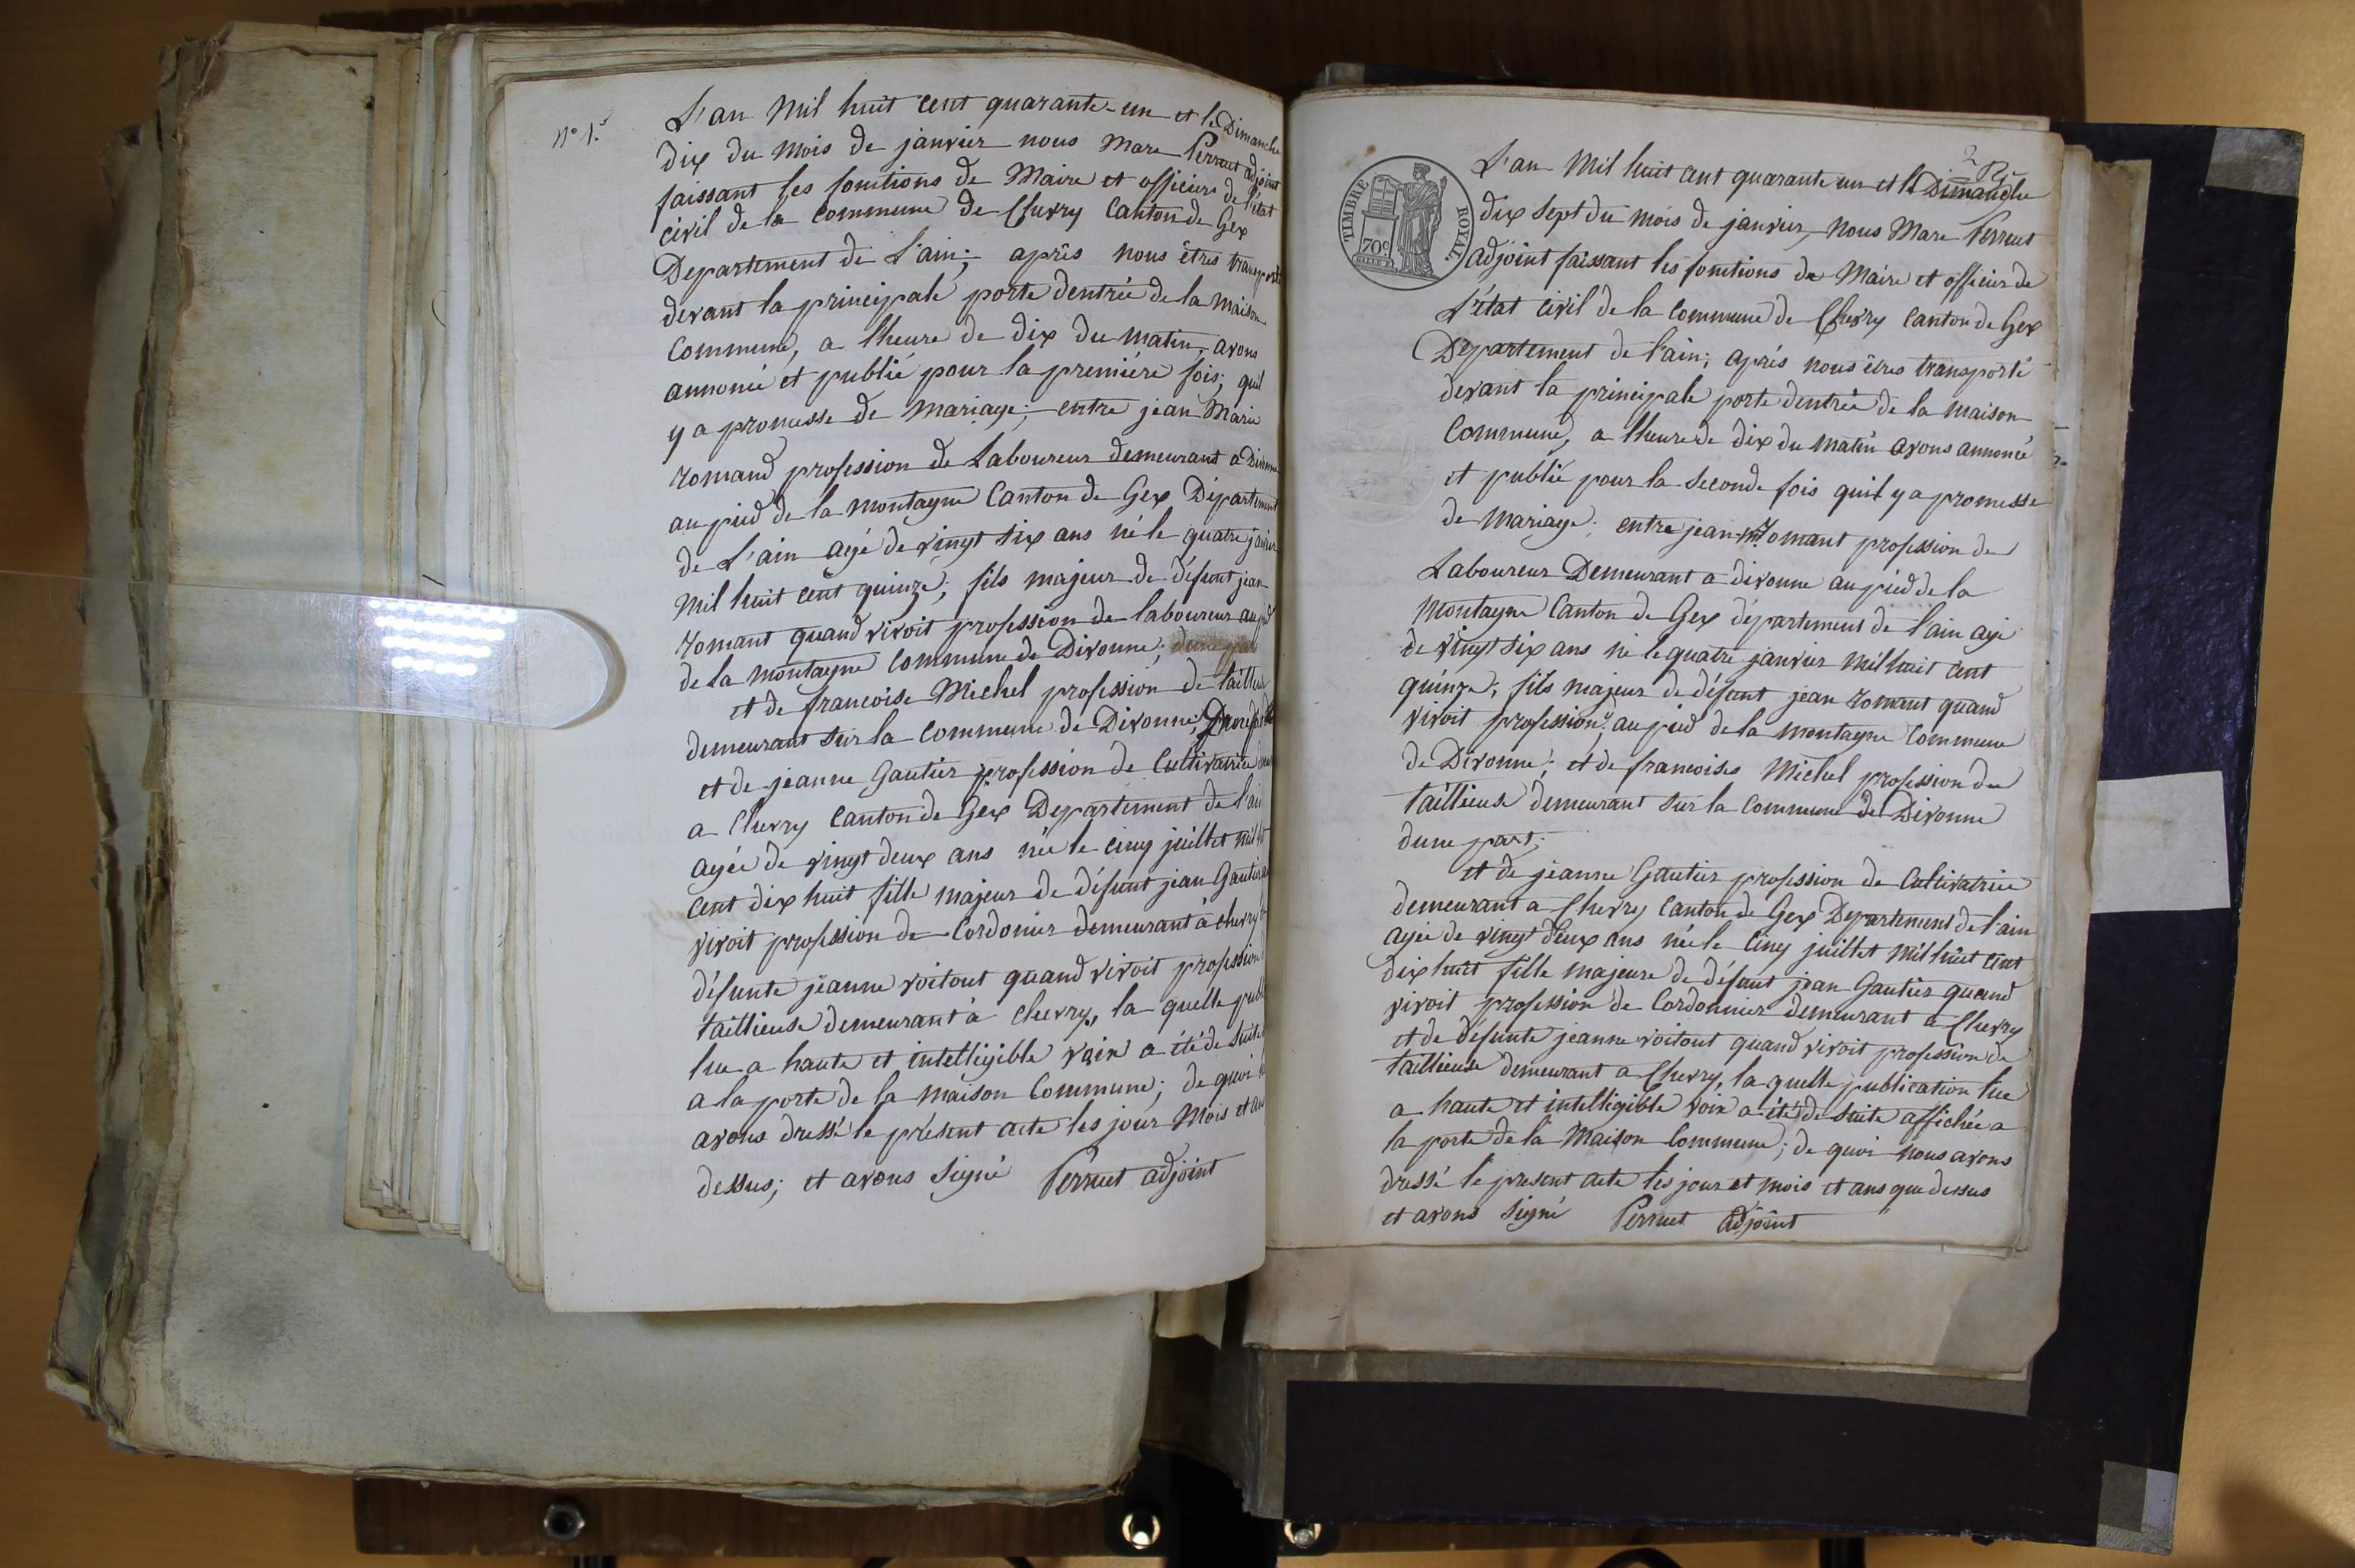 N° 1.
L'an mil huit cent quarante-un et le Dimanche
dix du mois de janvier nous Marc Perruet adjoint
faissant les fonctions de Maire et officiers de l'état
civil de la commune de Chevry Canton de Gex
Departement de L'ain; après nous êtres transporté
devant la principale porte dentrée de la maison
Commune, a lheure de dix du matin, avons
annoncé et publié pour la première fois; quil
y a promesse de mariage; entre jean Marie
romand profession de Laboureur demeurant a Divonne
au pied de la montagne Canton de Gex Département
de L'ain agé de vingt six ans né le quatre janvier
mil huit cent quinze; fils majeur de défunt jean
romant quand vivoit profession de laboureur au pied
de la montagne commune de Divonne; dune part
et de francoise Michel profession de taillieuse
demeurant sur la commune de Divonne; Dune part
et de jeanne Gautier profession de Cultivatrice
a Chevry Canton de Gex Departement de l'ain
agée de vingt deux ans née le cinq juillet mil huit
cent dix huit fille majeur de défunt jean Gautier
vivoit profession de Cordonier demeurant à chevry
défunte jeanne voitout quand vivoit profession
taillieuse demeurant à Chevry, la quelle
lue a haute et intelligible voix a été de suite
a la porte de la maison Commune; de quoi
avons dressé le présent acte les jour mois et an
dessus; et avons signé Perruet adjoint
2
L'an mil huit cent quarante un et le Dimanche
TIMBRE ROYAL
70c
dix sept du mois de janvier, nous Marc Perruet
adjoint faissant les fonctions de Maire et officier de
L'état civil de la commune de Chevry canton de Gex
Departement de l'ain; après nous êtres transporté
devant la principale porte dentrée de la maison
Commune, a lheure de dix du matin avons annoncé
et publié pour la seconde fois quil y a promesse
de mariage; entre jean romant profession de
Laboureur Demeurant a divonne au pied de la
montagne Canton de Gex département de l'ain agé
de vingt six ans né le quatre janvier mil huit cent
quinze; fils majeur de défunt jean romant quand
vivoit profession au pied de la montagne Commune
de Divonne; et de francoises Michel profession de
taillieuse demeurant sur la commune de Divonne
dune part;
et de jeanne Gautier profession de Cultivatrice
demeurant a Chevry Canton de Gex Departement de l'ain
agée de vingt deux ans née le cinq juillet mil huit cent
dix huit fille majeure de défunt jean Gautier quand
vivoit profession de Cordonnier demeurant a Chevry
et de défunte jeanne voitout quand vivoit profession de
taillieuse demeurant a Chevry, la quelle publication lue
a haute et intelligible voix a été de suite affichée a
la porte de la Maison Commune; de quoi nous avons
dressé le present acte les jour et mois et ans que dessus
et avons signé Perruet adjoint